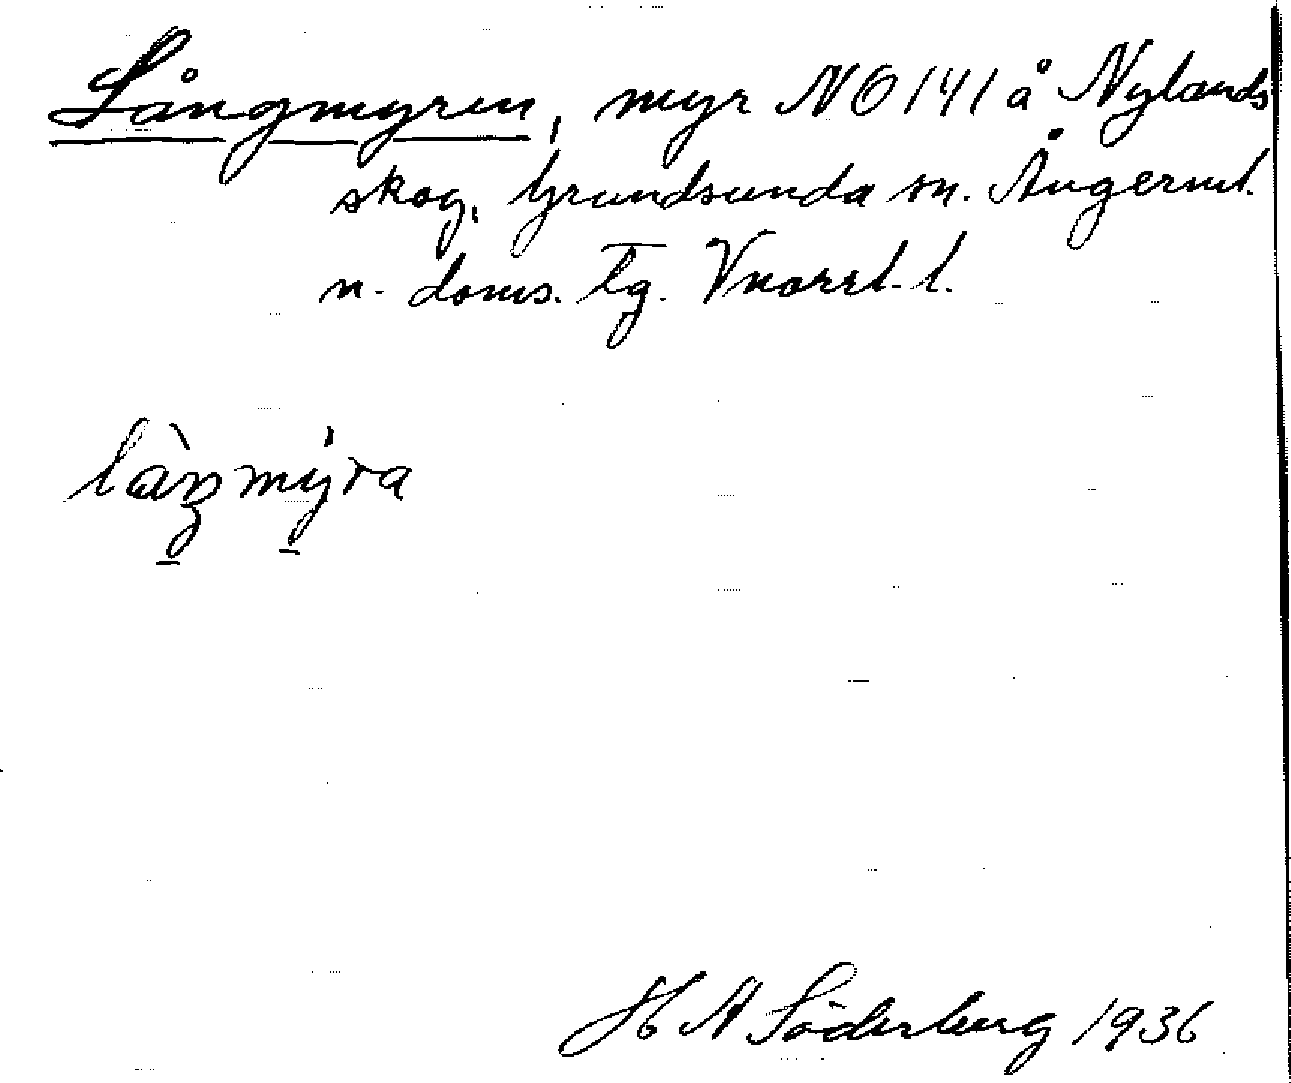 Långmyren, myr NO 141 å Nylands
skog, Grundsunda sn. Ångerml.
n. doms. tg. Vnorrl. l.
làŋmỳ̱ra
H A Söderberg 1936